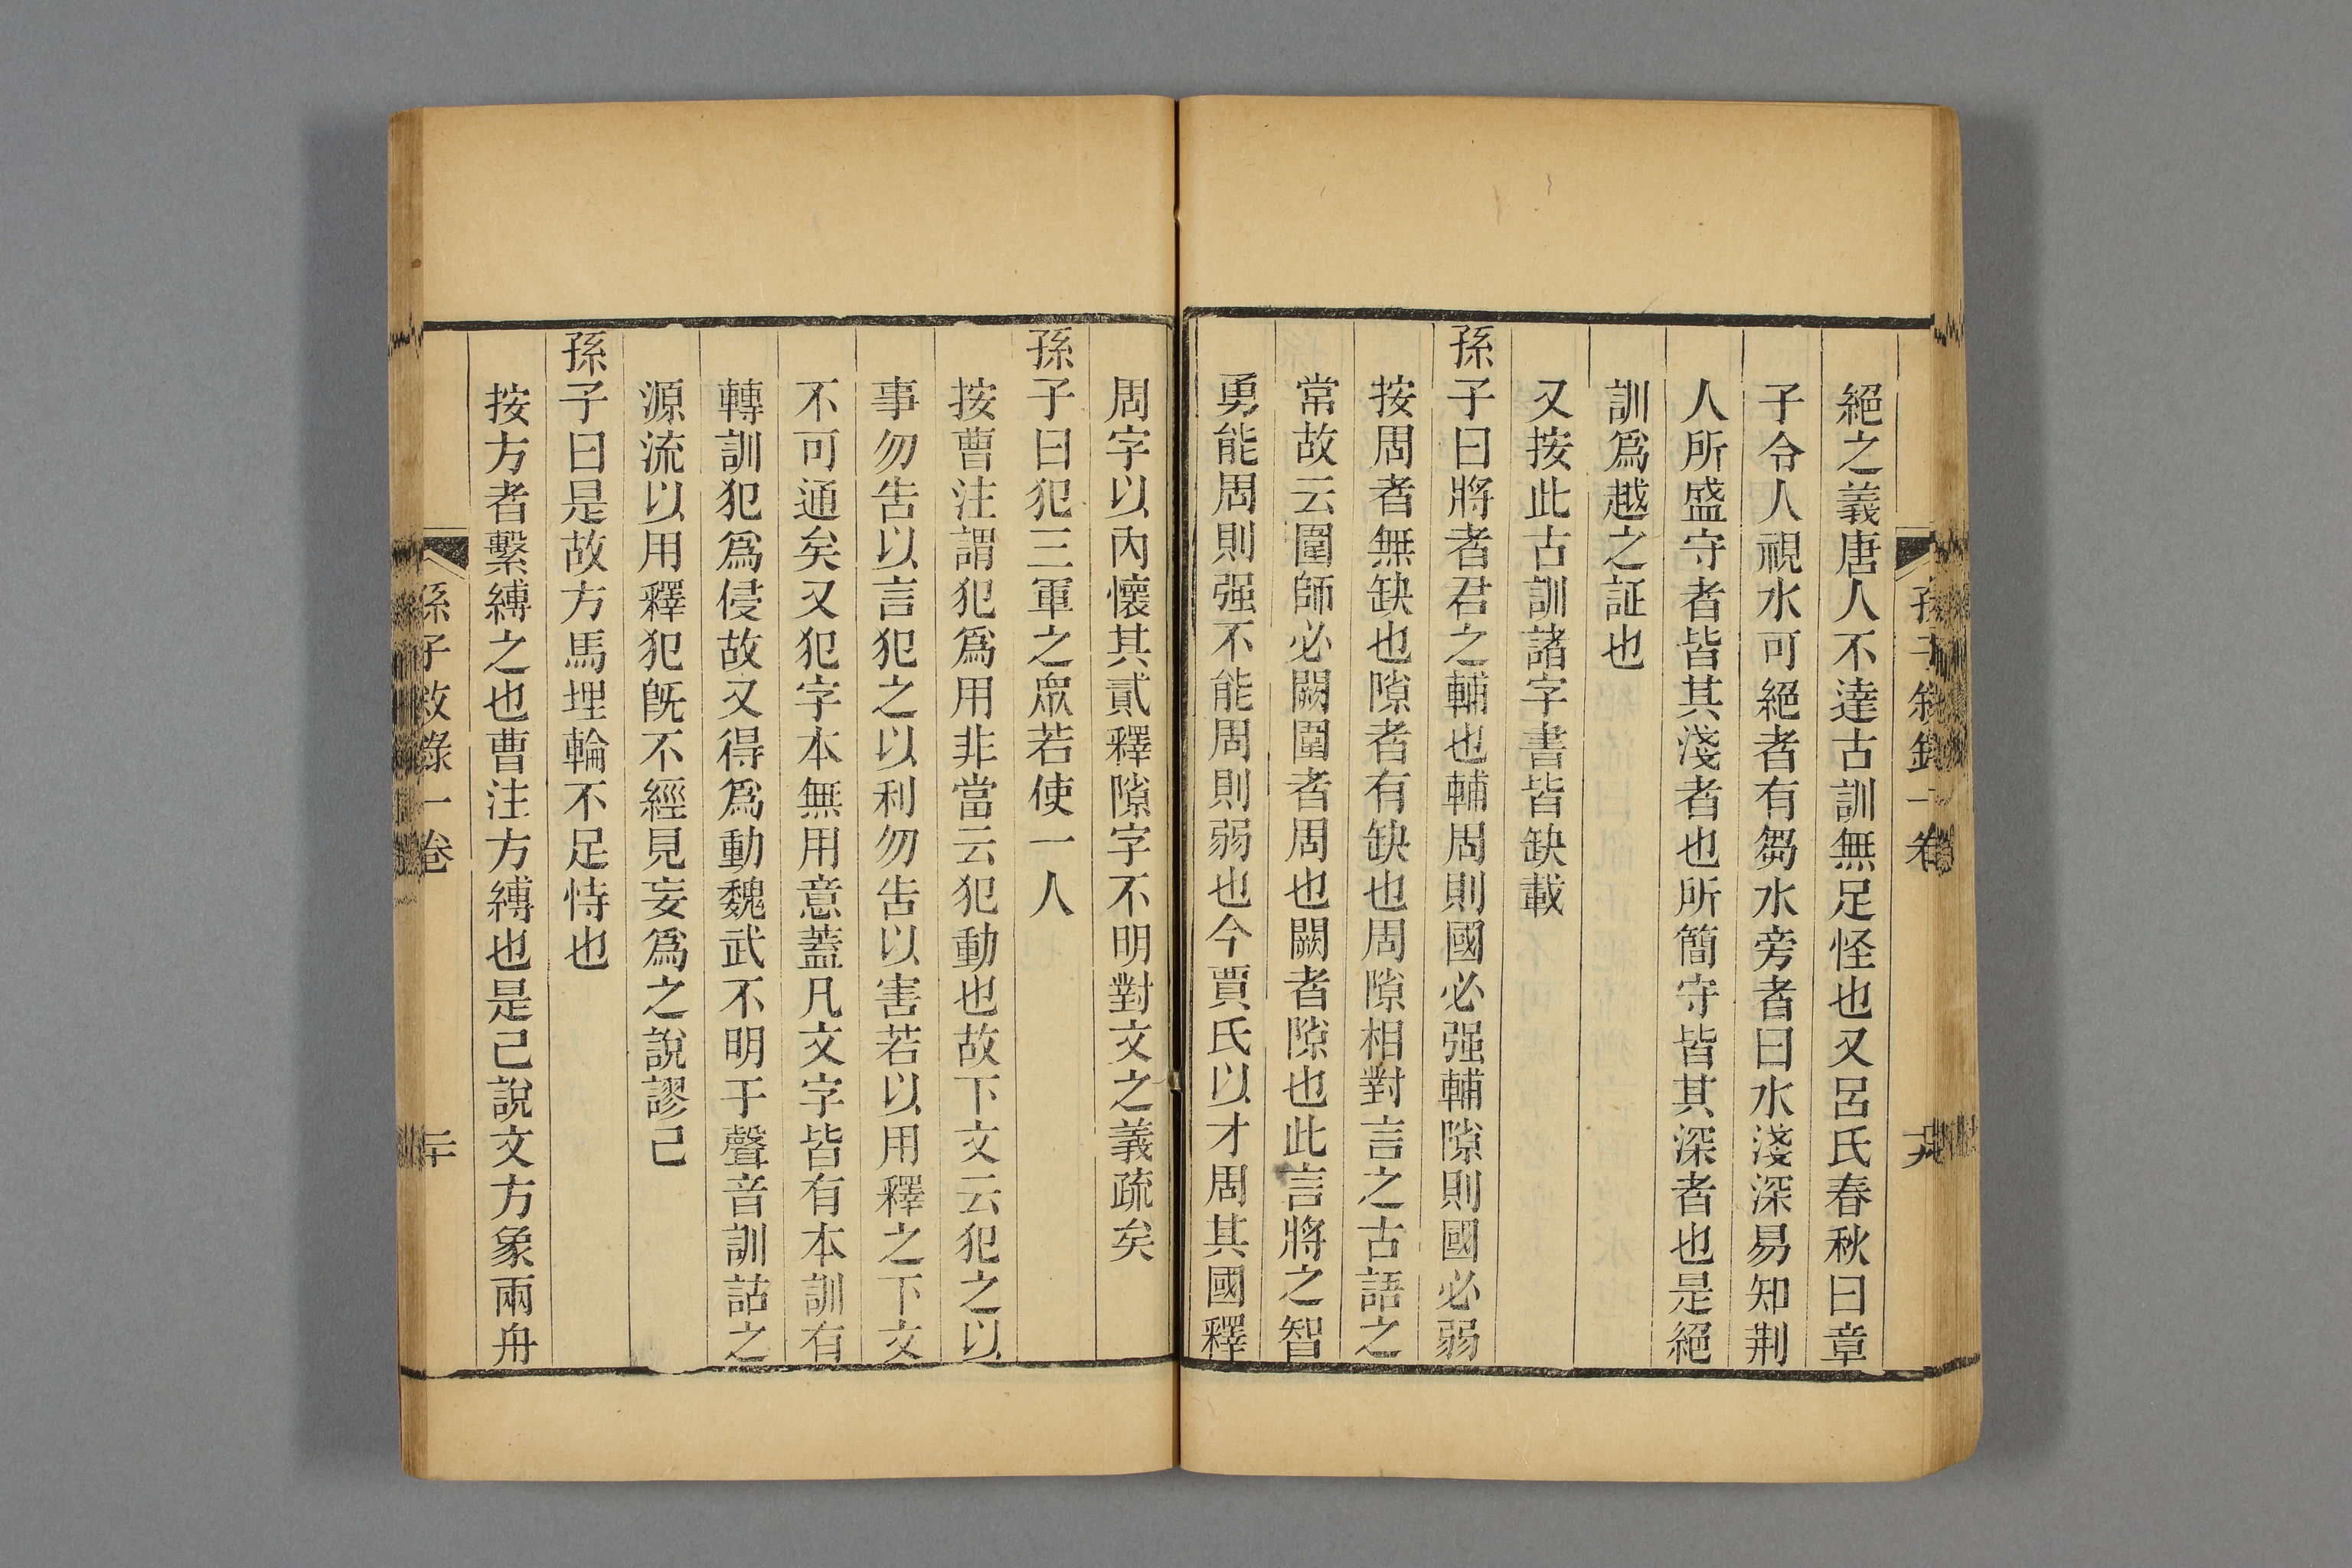 絕之義唐人不達古訓無足怪也又呂氏春秋曰章
子令人視水可絕者有芻水旁者曰水淺深易知荆
人所盛守者皆其淺者也所簡守皆其深者也是絕
訓爲越之証也
又按此古訓諸字書皆缺載
孫子曰將者君之輔也輔周則國必强輔隙則國必弱
按周者無缺也隙者有缺也周隙相對言之古語之
常故云圍師必闕圍者周也闕者隙也此言將之智
勇能周則强不能周則弱也今賈氏以才周其國釋
周字以內懷其貳釋隙字不明對文之義疏矣
孫子曰犯三軍之眾若使一人
按曹注謂犯爲用非當云犯動也故下文云犯之以
事勿告以言犯之以利勿告以害若以用釋之下文
不可通矣又犯字本無用意蓋凡文字皆有本訓有
轉訓犯爲侵故又得爲動魏武不明于聲音訓詁之
源流以用釋犯旣不經見妄爲之說謬己
孫子曰是故方馬埋輪不足恃也
按方者繫縛之也曹注方縛也是己說文方象兩舟
孫子敘錄一卷
二十